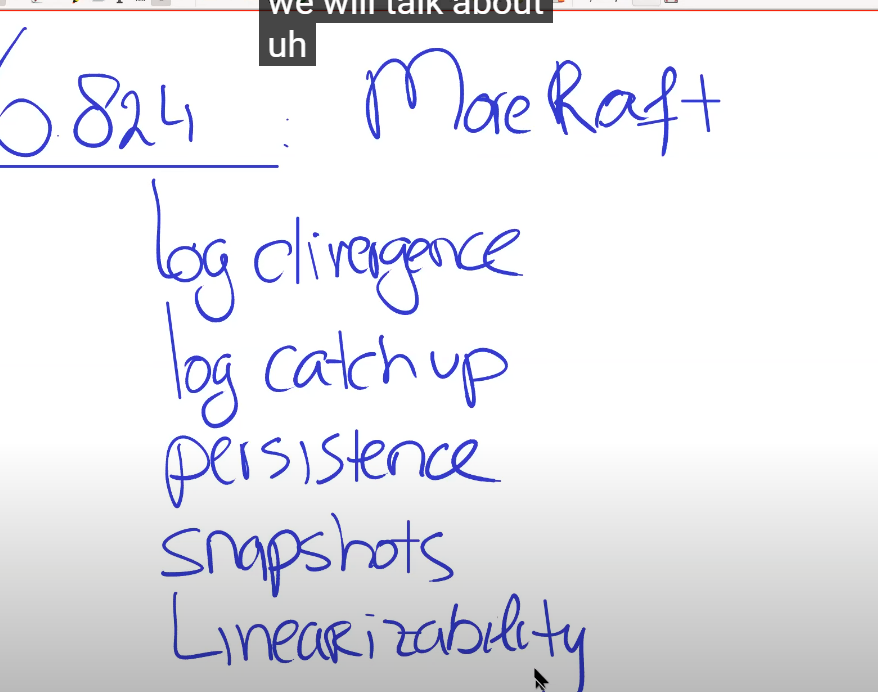 we will talk about
uh
6.824 : More Raft
log divergence
log catch up
persistence
snapshots
Linearizability